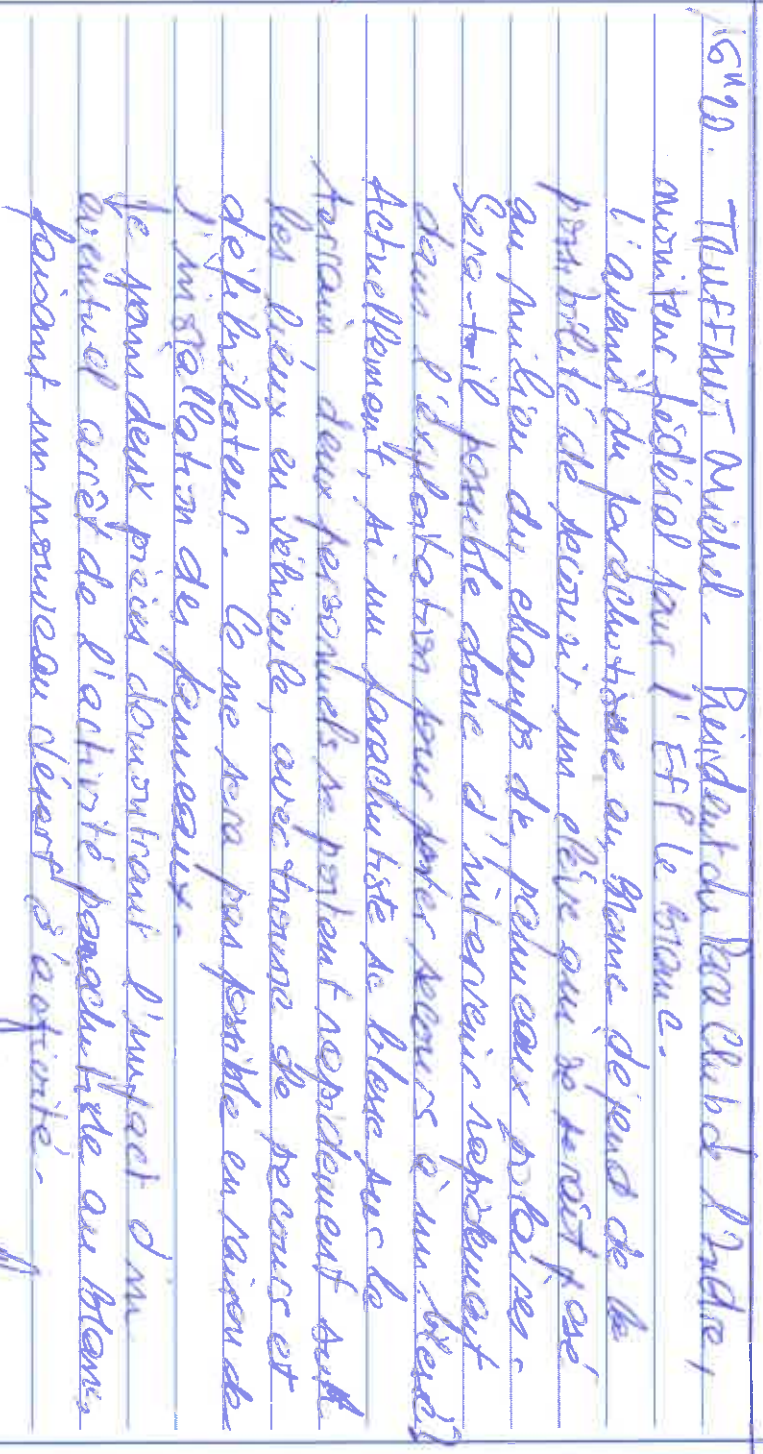 16h20. TAUFFNUT Michel. Président du Para Club de l'Indre,
moniteur fédéral pour l'EFP le Blanc.
l'avenir du parachutisme au Blanc dépend de la
possibilité de secourir un élève qui se serait posé
au milieu du champs de panneaux solaires.
Sera-t-il possible donc d'intervenir rapidement
dans l'exploitation pour porter secours à un blessé?
Actuellement, si un parachutiste se blesse sur le
terrain deux personnels se portent rapidement sur
les lieux en véhicule, avec trousse de secours et
défibrilateur. Ce ne sera pas possible en raison de
l'installation des panneaux.
Je joins deux pièces démontrant l'impact d'un
éventuel arrêt de l'activité parachutiste au Blanc,
faisant un nouveau désert d'activité.